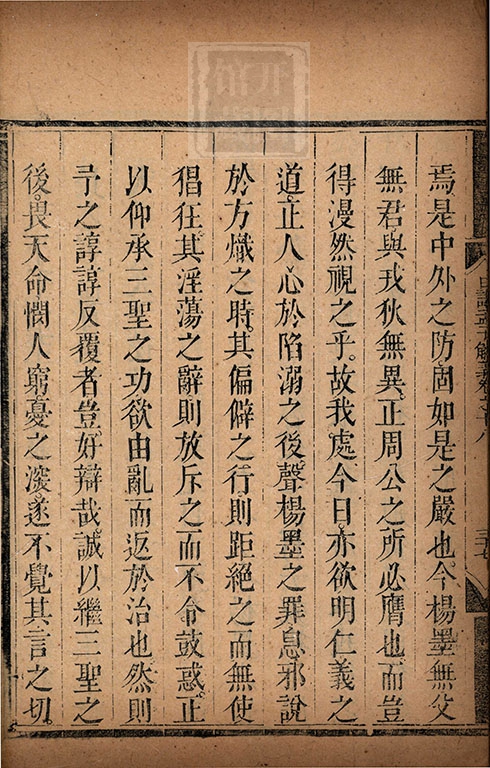 焉是中外之防固如是之嚴也今楊墨無父
無君與戎狄無異正周公之所必膺也而豈
得漫然視之乎故我處今日亦欲明仁義之
道正人心於陷溺之後聲楊墨之罪息邪說
於方熾之時其偏僻之行則距絕之而無使
猖狂其淫蕩之辭則放斥之而不令鼓惑正
以仰承三聖之功欲由亂而返於治也然則
予之諄諄反覆者豈好辯哉誠以繼三聖之
後畏天命憫人窮憂之深遂不覺其言之切